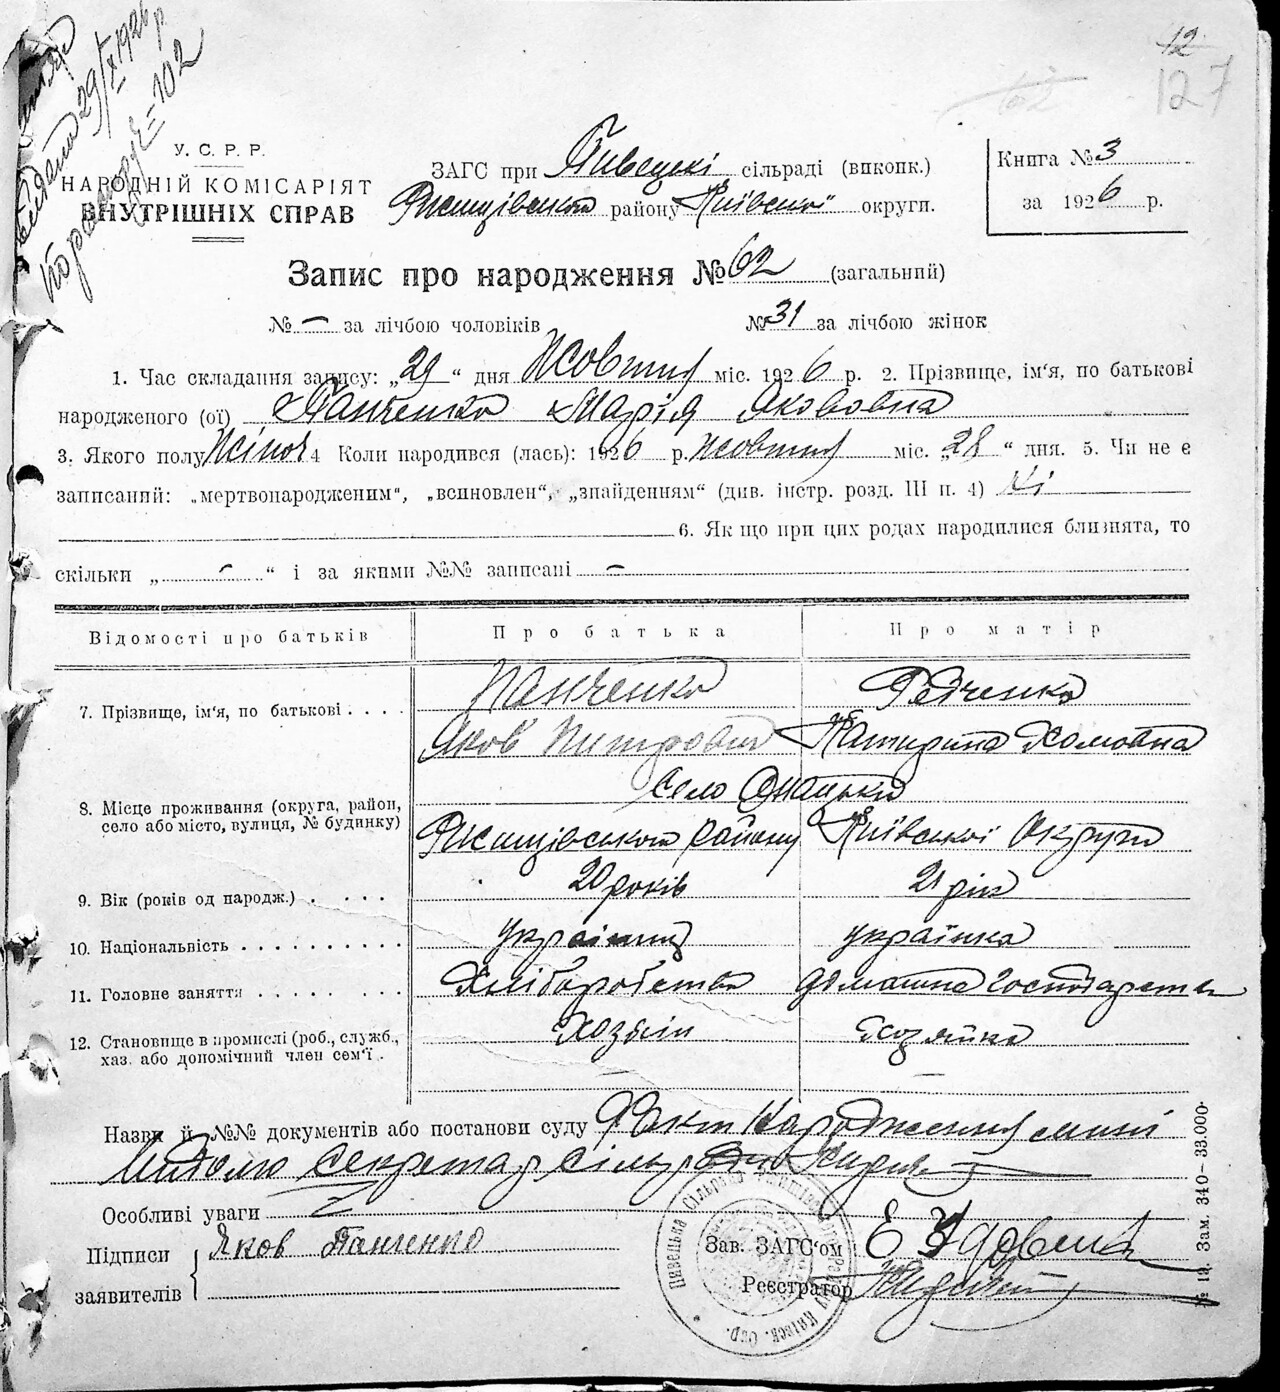 12
127
62
Видана 29/X 1926 р.
№ 102
У. С. Р. Р.
НАРОДНІЙ КОМІСАРІЯТ
ВНУТРІШНІХ СПРАВ
ЗАГС при Пивецькі сільраді (виконк.)
Ржищівського району Київської округи.
Книга № 3
за 1926 р.
Запис про народження № 62 (загальний)
№ – за лічбою чоловіків № 31 за лічбою жінок
1. Час складання запису: „29“ дня Жовтня міс. 1926 р. 2. Прізвище, ім'я, по батькові
народженого (ої) Панченко Марія Якововна
3. Якого полу Жіноч 4 Коли народився (лась): 1926 р. жовтня міс. „28“ дня. 5. Чи не є
записаний: „мертвонародженим“, „всиновлен“, „знайденням“ (див. інстр. розд. III п. 4) Ні
6. Як що при цих родах народилися близнята, то
скільки „ – “ і за якими №№ записані –
Відомості про батьків Про батька Про матір
7. Прізвище, ім'я, по батькові . . . . Панченко Редченко
Яков Питрович Катирина Хомовна
8. Місце проживання (округа, район, село або місто, вулиця, № будинку) село
Ржищівського району Київської Округи
9. Вік (років од народж.) . . . . 20 років 21 рік
10. Національність . . . . . . . . . . українец українка
11. Головне заняття . . . . . . . . Хліборобство домашне Господарство
12. Становище в промислі (роб., служб., хаз. або допомічний член сем'ї . Хозяін Хозяйка
– –
Назви й №№ документів або постанови суду Факт Народження мині
відомо Секретар сільради
Особливі уваги Z
Підписи заявителів Яков Панченко
Зав. ЗАГС'ом
Реєстратор
Пивецька Сільрада Ржищівського Району Київск. Окр.
№ 12. Зам. 340–33.000